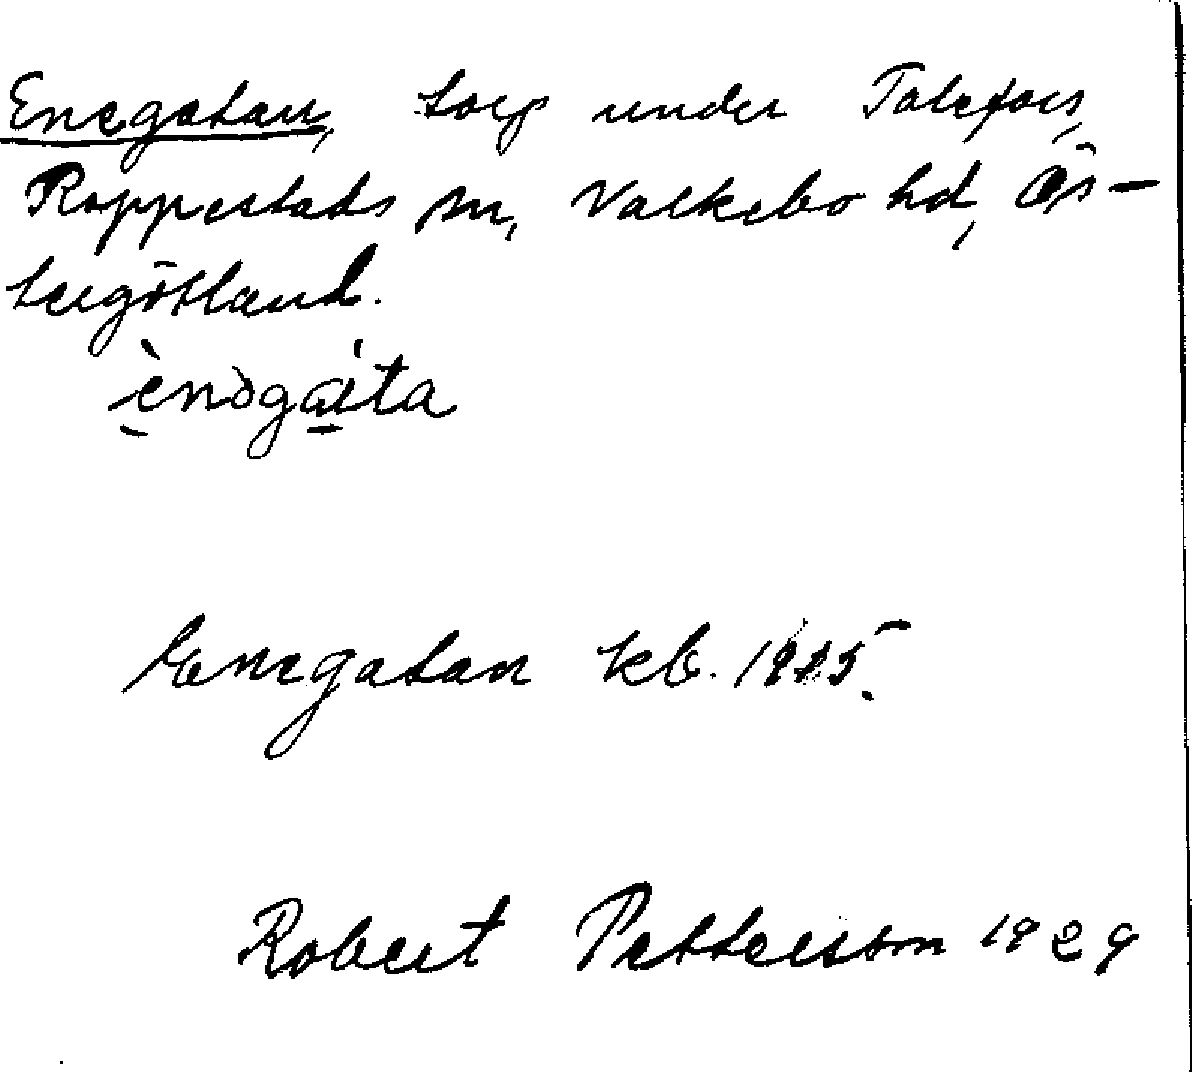 Enegatan, torp under Talefors,
Rappestads sn, Valkebo hd, Ös-
tergötland.
Enegatan kb. 1925.
Robert Petterson 1929